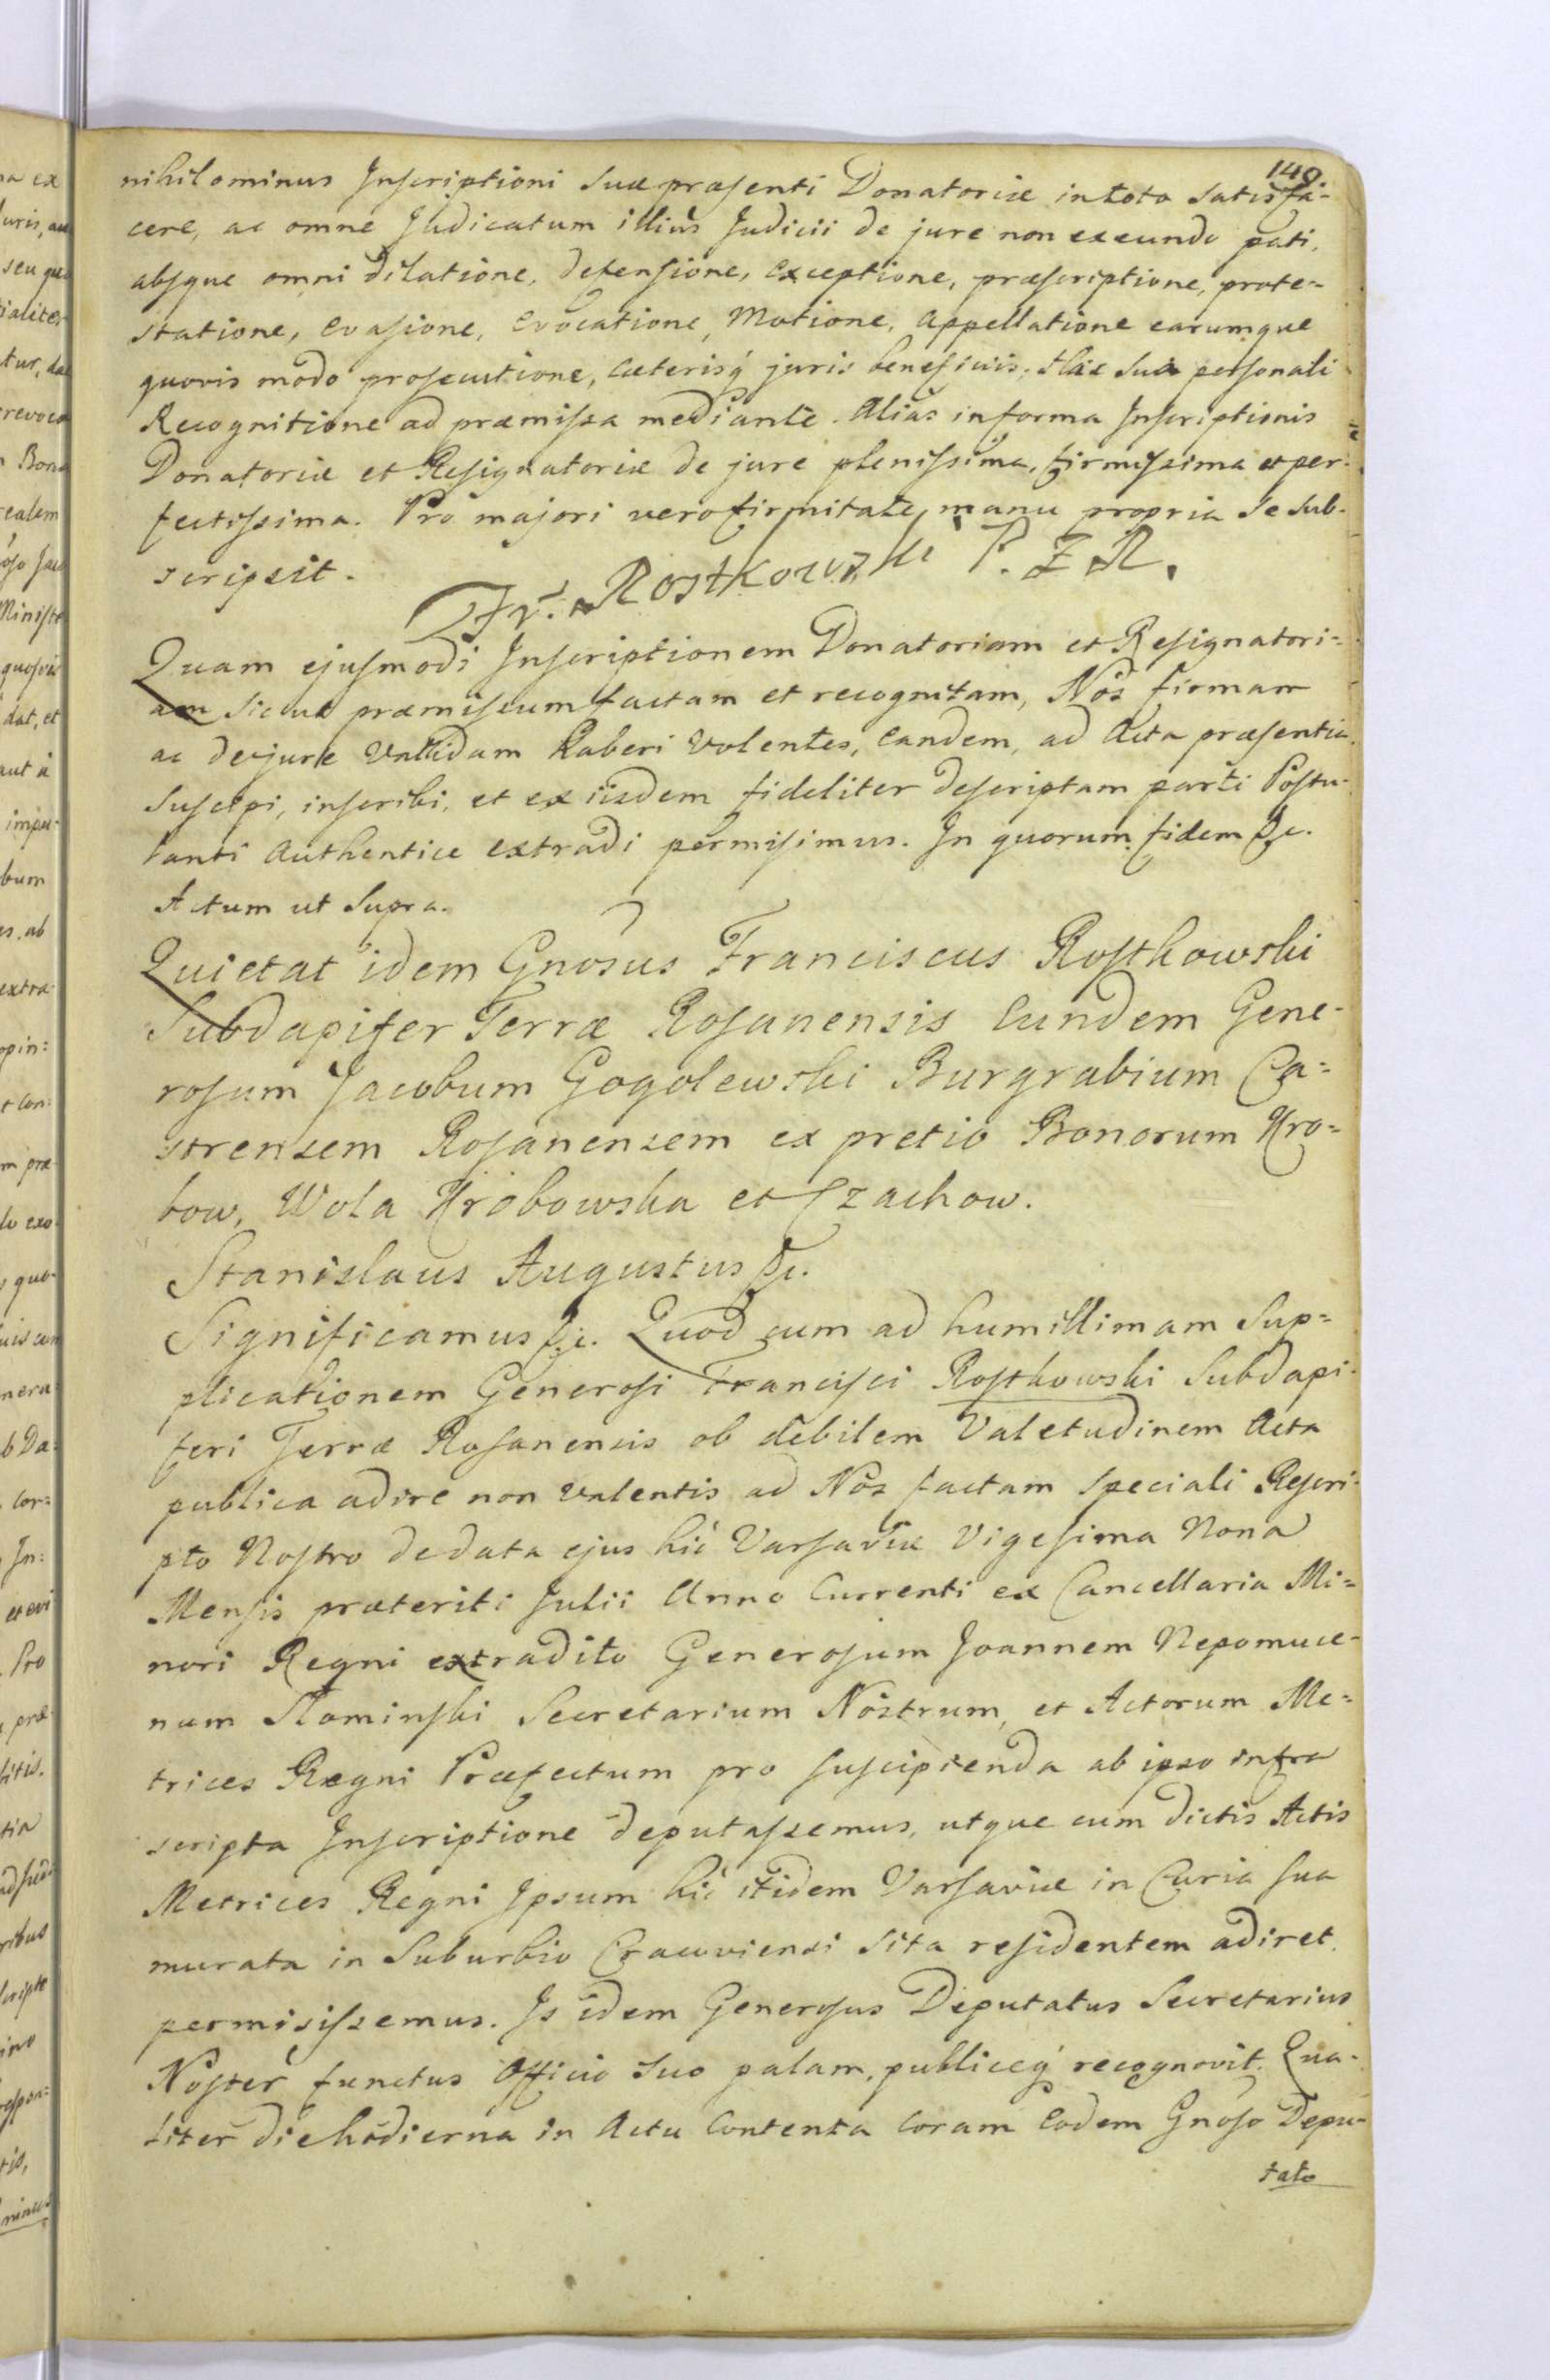 149.
nihilominus Inscriptioni suæ præsenti Donatoriæ in toto satisfa-
cere, ac omne Judicatum illius Judicii de jure non exeundo pati,
absque omni dilatione, defensione, exceptione, præscriptione, prote-
statione, evasione, evocatione, Motione, appellatione earumque
quovis modo prosecutione, cæterisq juris beneficiis, Hac sua personali
Recognitione ad præmissa mediante. Alias in forma Inscriptionis
Donatoriæ et Resignatoriæ de jure plenissima, firmissima et per-
fectissima. Pro majori vero firmitate, manu propria se sub-
scripsit.
Fr. Rostkowski P. Z R.
Quam ejusmodi Inscriptionem Donatoriam et Resignatori-
am sicut præmissum factam et recognitam, Nos firmam
ac de jure validam haberi volentes, eandem, ad Acta præsentia
suscipi, inscribi, et ex iisdem fideliter descriptam parti Postu-
lanti authentice extradi permisimus. In quorum fidem &c.
Actum ut supra.
Quietat idem Gnosus Franciscus Rostkowski
Subdapifer Terræ Rosanensis eundem Gene-
rosum Jacobum Gogolewski Burgrabium Ca-
strensem Rosanensem ex pretio Bonorum Hro-
bow, Wola Hrobowska et Czachow.
Stanislaus Augustus &c.
Significamus &c. Quod cum ad humillimam Sup-
plicationem Generosi Francisci Rostkowski Subdapi-
feri Terræ Rosanensis ob debilem Valetudinem Acta
publica adire non valentis ad Nos factam speciali Rescri-
pto Nostro de data ejus hic Varsaviæ Vigesima Nona
Mensis præteriti Julii Anno Currenti ex Cancellaria Mi-
nori Regni extradito Generosum Joannem Nepomuce-
num Slominski Secretarium Nostrum, et Actorum Me-
trices Regni Præfectum pro suscipienda ab ipso infra
scripta Inscriptione deputassemus, utque cum dictis Actis
Metrices Regni Ipsum hic itidem Varsaviæ in Curia sua
murata in Suburbio Cracoviensi sita residentem adiret,
permisissemus. Is idem Generosus Deputatus Secretarius
Noster functus Officio suo palam, publiceq recognovit. Qua-
liter die hodierna in Actu Contenta Coram eodem Gnoso Depu-
tato